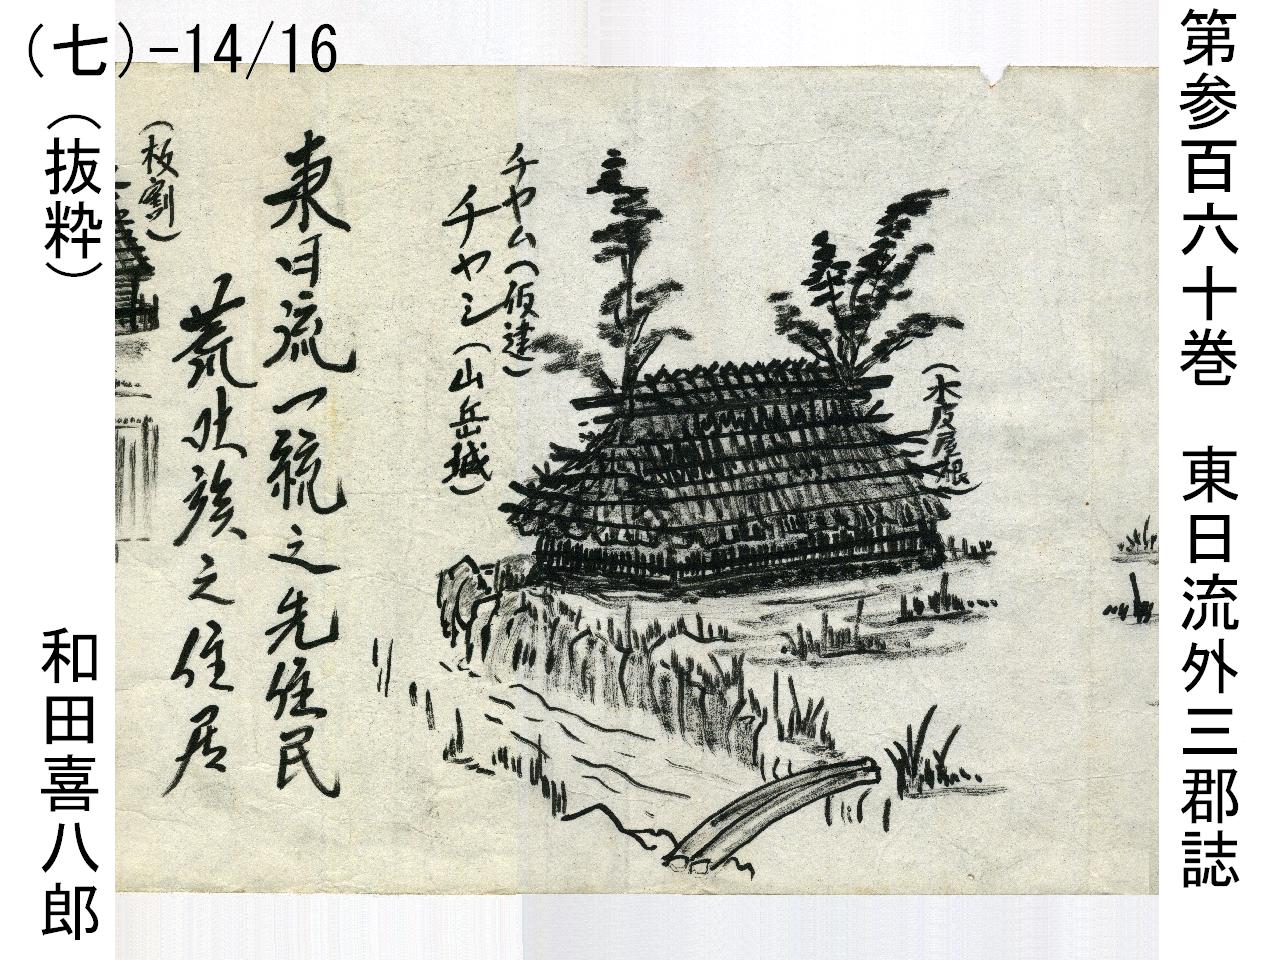 第参百六十巻　東日流外三郡誌
(七)-14/16
(抜粋)
和田喜八郎
(木皮屋根)
チヤム(仮建)
チヤシ(山岳越)
東日流一統之先住民
荒吐族之住居
(板割)